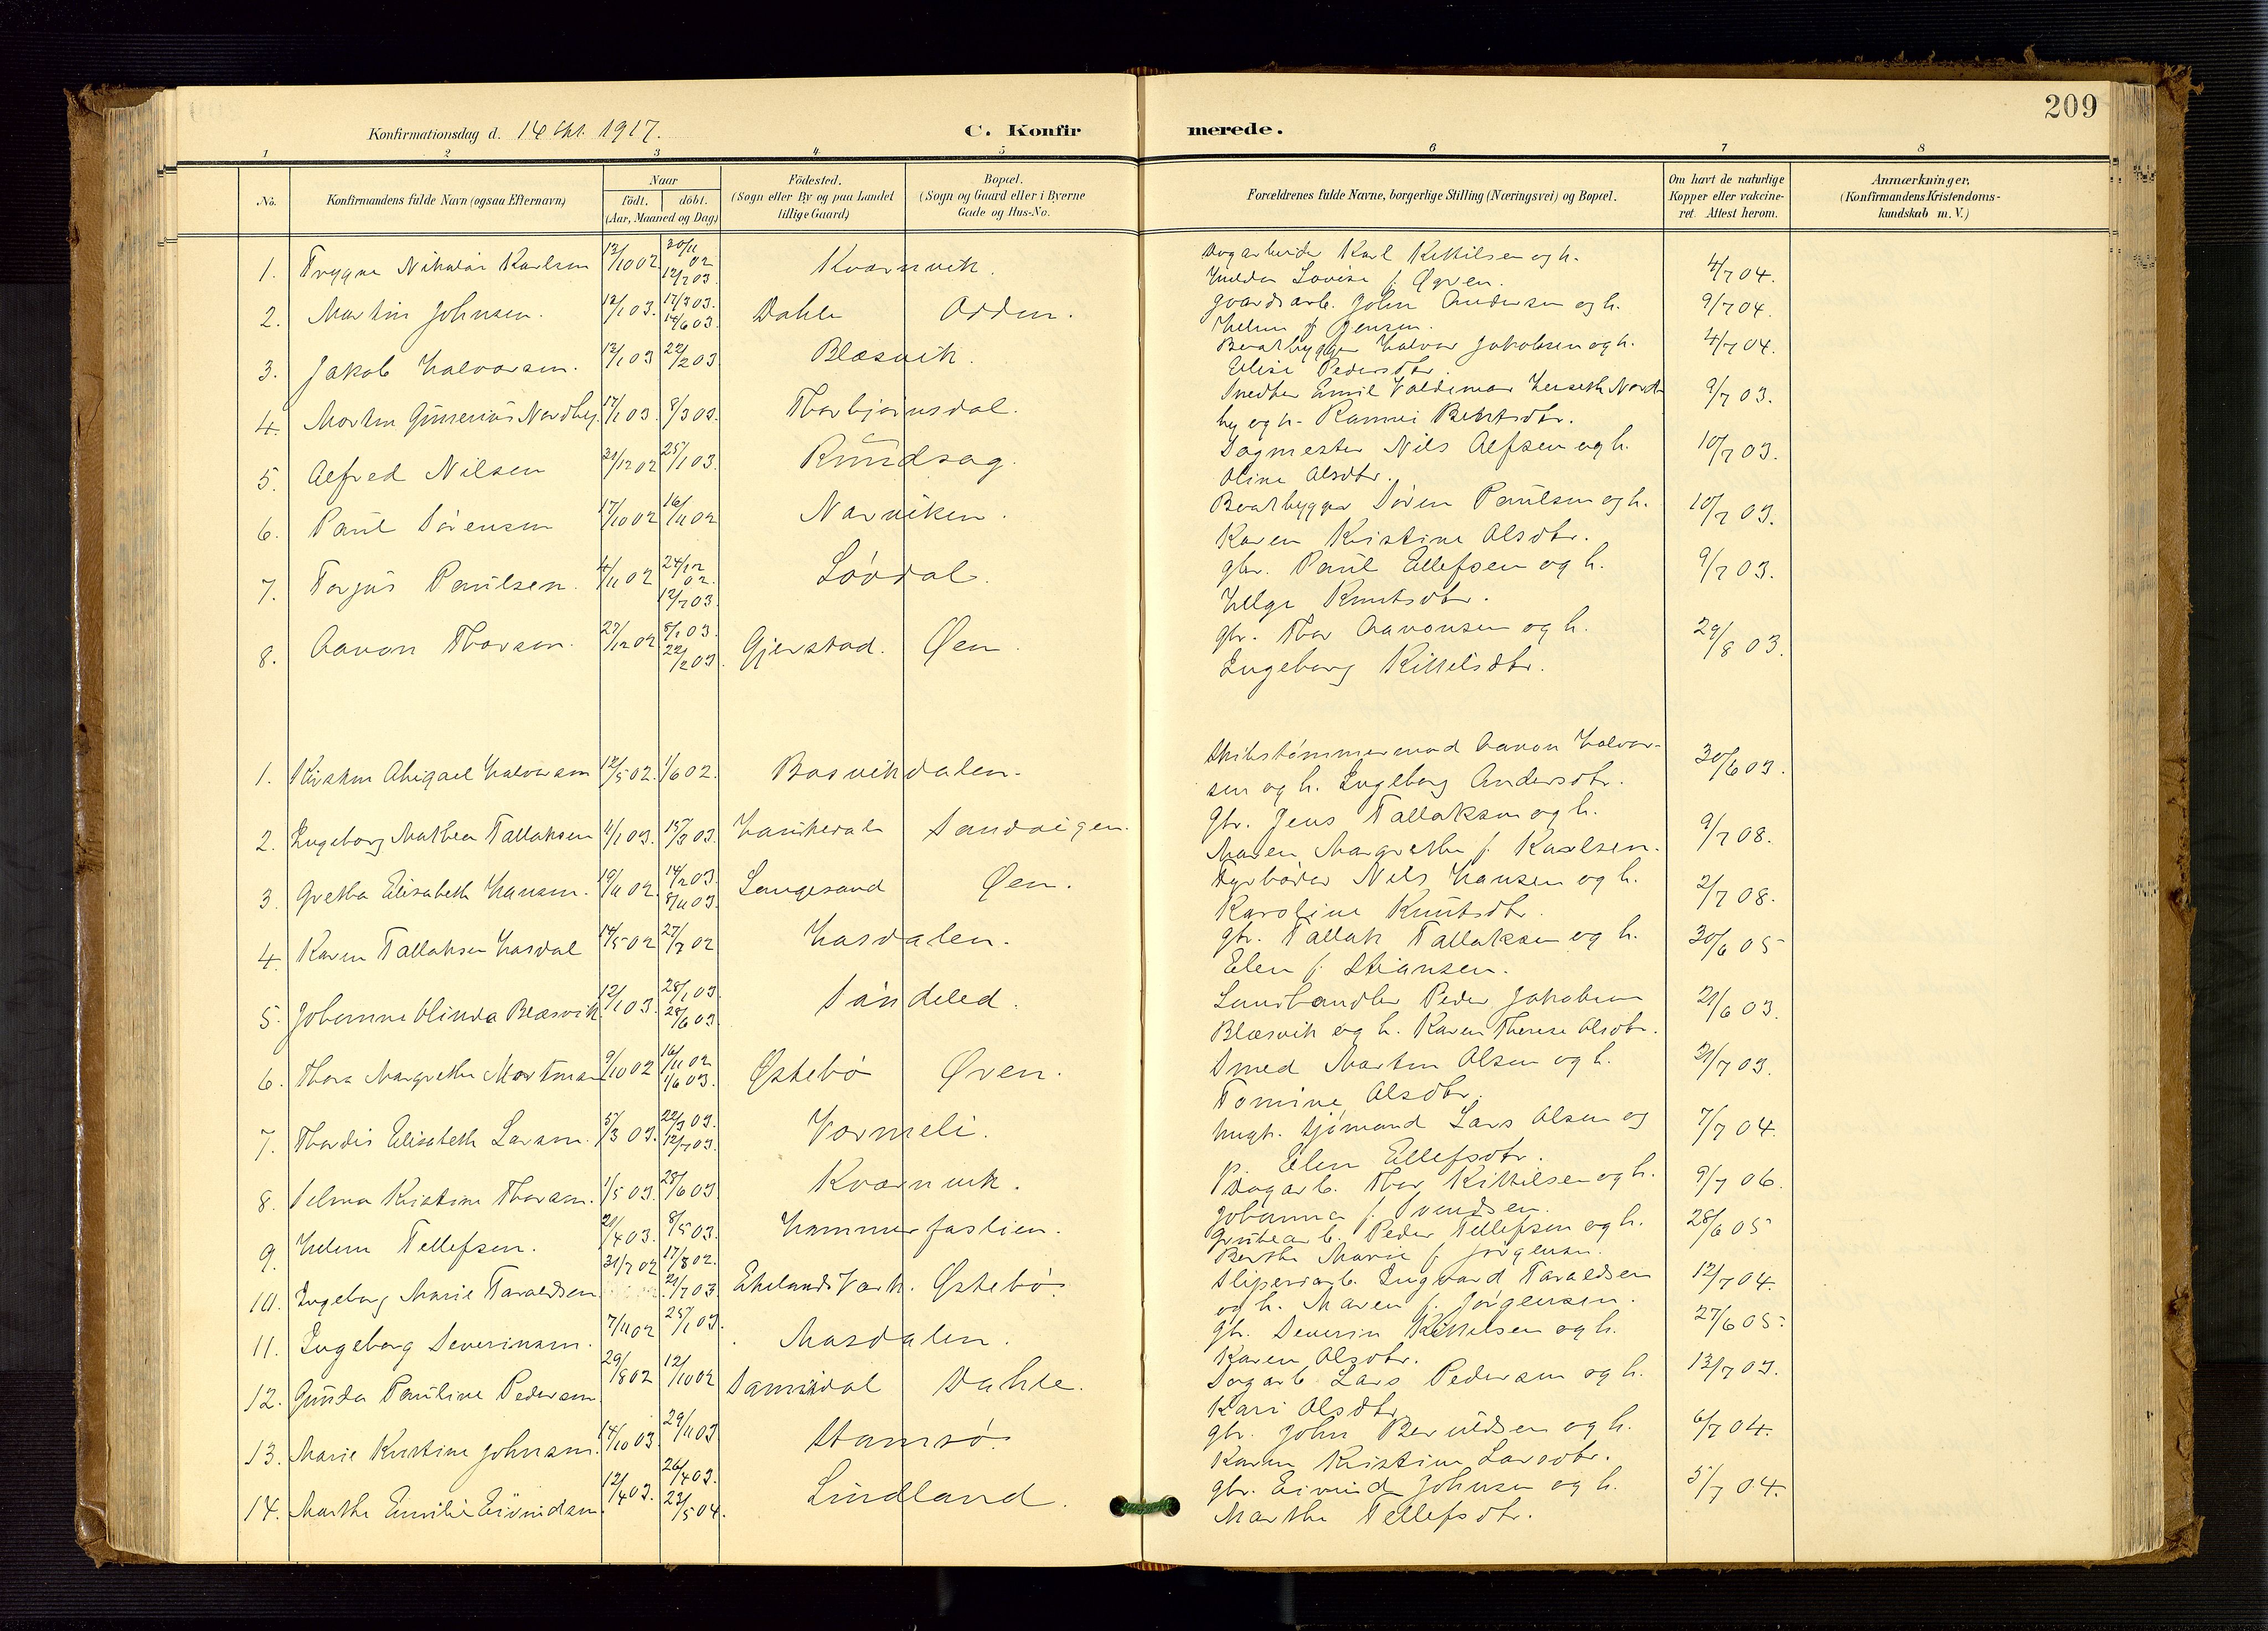 209
Konfirmationsdag d. 14 Okt. 1917. C. Konfir merede.
1 2 3 4. 5 6 7 8
No. Konfirmandens fulde Navn (ogsaa Efternavn) Naar födt. döbt. (Aar, Maaned og Dag) Födested. (Sogn eller By og paa Landet tillige Gaard) Bopæl. (Sogn og Gaard eller i Byerne Gade og Hus-No. Forældrenes fulde Navne, borgerlige Stilling (Næringsvei) og Bopæl. Om havt de naturlige Kopper eller vakcineret. Attest herom. Anmærkninger, (Konfirmandens Kristendomskundskab m. V.)
1. Trygve Nikolai Karlsen 12/10 02 30/11 02 12/7 03. Kvarnvik. Sogarbeider Karl Kittilsen og h.
Hulda Lovise f. Øgren. 4/7 04.
2. Martin Johnsen. 12/1 03. 17/3 03. 14/6 03. Dahle Odden. gaardsarb. John Andersen og h.
Helene f. Jensen. 9/7 04.
3. Jakob Halvorsen. 12/1 03 22/2 03 Blæsvik. Baatbygger Halvor Jakobsen og h.
Elise Pedersdtr. 4/7 04.
4. Morten Gunerius Nordby. 17/1 03. 8/3 03. Thorbjørnsdal. Snedker Emil Valdemar Nord
by og h. Rannei Bentsdtr. 9/7 03.
5. Alfred Nilsen 21/12 02 25/1 03. Rundsag. Sagmester Nils Alfsen og h.
Oline Alsdtr. 10/7 03.
6. Paul Sørensen 17/10 02 16/11 02 Narviken. Baatbygger Søren Paulsen og h.
Karen Kristine Olsdtr. 10/7 03.
7. Torjus Paulsen. 4/11 02 24/12 02. 12/7 03. Løvdal. gbr. Paul Ellefsen og h.
Helge Knutsdtr. 9/7 03.
8. Aanon Thorsen. 23/12 02 5/1 03. 22/2 03. Gjerstad. Øen. gbr. Thor Aanonsen og h.
Ingeborg Kittelsdtr. 29/8 03.
1. Kirsten Abigael Halvorsen 12/5 02. 1/6 02. Bosvikdalen. Skibstømmermand Aanon Halvor-
sen og h. Ingeborg Andersdtr. 30/6 03.
2. Ingeborg Mathea Tallaksen 4/1 03. 15/3 03. Haukedal Sandvigen. gbr. Jens Tallaksen og h.
Maren Margrethe f. Karlsen. 9/7 08.
3. Gretha Elisabeth Hansen. 19/11 02. 14/2 03. 8/11 03. Langesand Øen. Fyrbøder Nils Hansen og h.
Karoline Knutsdtr. 2/7 08.
4. Karen Tallaksen Hasdal 14/5 02 27/7 02 Hasdalen. gbr. Tallak Tallaksen og h.
Elen f. Stiansen. 30/6 05
5. Johanne Olinda Blæsvik. 12/1 03. 28/1 03. 28/6 03. Søndeled. Landhandler Peder Jakobsen
Blæsvik og h. Karen Therese Olsdtr. 21/6 03.
6. Thora Margrethe Mortman 9/10 02 16/11 02 1/6 03. Østebø Øven. Smed Morten Olsen og h.
Tomine Alsdtr. 21/7 03.
7. Thordis Elisabeth Larsen. 5/3 03. 22/3 03. 12/7 03. Vormeli. Ungk. Sjømand Lars Olsen og
P. Elen Ellefsdtr. 7/7 04.
8. Selma Kristine Thorsen. 1/5 03. 28/6 03. Kvarnvik. Sagarb. Thor Kittilsen og h.
Johanna f. Svendsen. 9/7 06.
9. Helene Tellefsen. 21/4 03. 8/5 03. Hammerfastien. Grubearb. Peder Tellefsen og h.
Berthe Marie f. Jørgensen. 28/6 05
10. Ingeborg Marie Taraldsen 31/7 02 17/8 02. 21/7 03 Ekelands Værk. Østebø. Sliperiarb. Ingvard Taraldsen
og h. Maren f. Jørgensen. 12/7 04.
11. Ingeborg Severinsen. 7/11 02 25/1 03. Masdalen. gbr. Severin Kittelsen og h.
Karen Olsdtr. 27/6 05.
12. Gunda Pauline Pedersen. 29/8 02 12/10 02 Dahle. Sagarb. Lars Pedersen og h.
Kari Olsdtr. 13/7 03.
13. Marie Kristine Johnsen. 14/10 03. 29/11 03 Stamsø. gbr. John Beruldsen og h.
Karen Kristine Larsdtr. 6/7 04.
14. Marthe Emilie Eivindsen. 12/4 03. 26/4 03. 23/5 04. Lindland. gbr. Eivind Johnsen og h.
Marthe Tellefsdtr. 5/7 04.